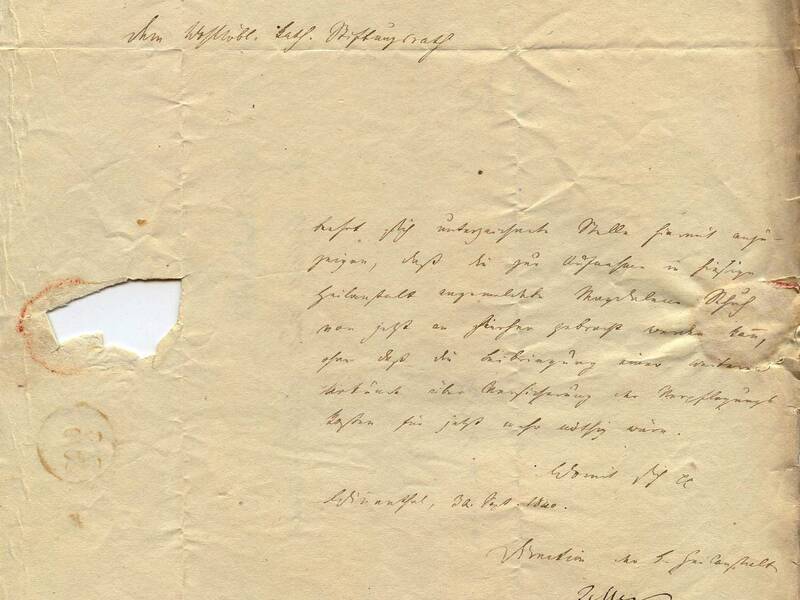 Dem Wohllöbl. kath. Stiftungsrath
beehrt sich unterzeichnete Stelle hiermit anzu-
zeigen, daß die zur Aufnahme in hiesige
Heilanstalt angemeldete Magdalena Schuh
von jetzt an hierher gebracht werden kann,
ohne daß die Beibringung einer weiteren
Urkunde über Versicherung der Verpflegungs
Kosten für jetzt mehr nöthig wäre.
Womit sich
Winnenthal, 30. Sept. 1840.
Direction der K. Heilanstalt
Zeller